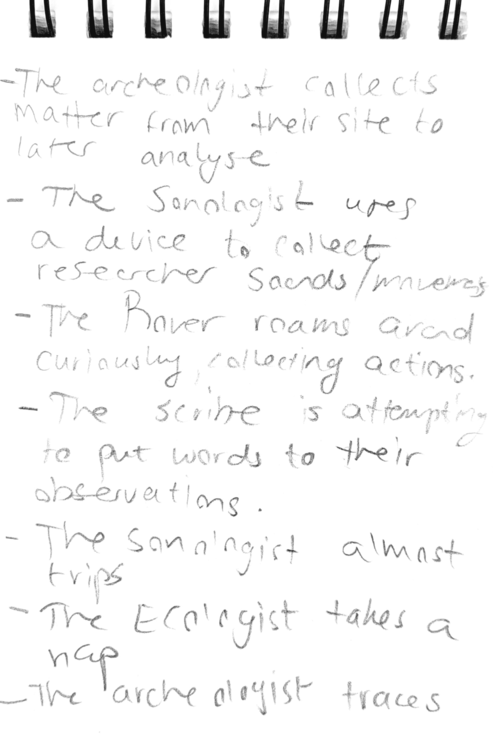 - The archeologist collects
matter from their site to
later analyse
- The Sonologist uses
a device to collect
researcher sounds/movements
- The Rover roams around
curiously, collecting actions.
- The scribe is attempting
to put words to their
observations.
- The Sonologist almost
trips
- The Ecologist takes a
nap
- The archeologist traces